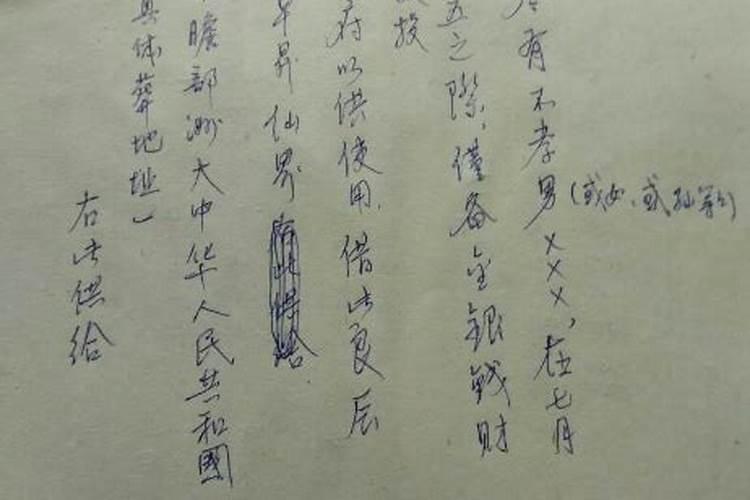 有不孝男（或女、或孙等）×××，在七月
五之际，僅备金銀钱财
投
府以供使用，借此良辰
早昇仙界
瞻部洲大中华人民共和國
具体葬地址）
右此供给